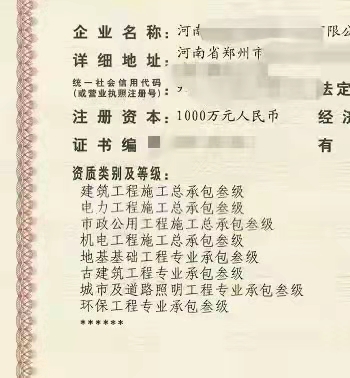 企业名称:河南 有限公
详细地址:河南省郑州市
统一社会信用代码
(或营业执照注册号): 法定
注册资本:1000万元人民币 经济
证书编 有
资质类别及等级:
建筑工程施工总承包叁级
电力工程施工总承包叁级
市政公用工程施工总承包叁级
机电工程施工总承包叁级
地基基础工程专业承包叁级
古建筑工程专业承包叁级
城市及道路照明工程专业承包叁级
环保工程专业承包叁级
******